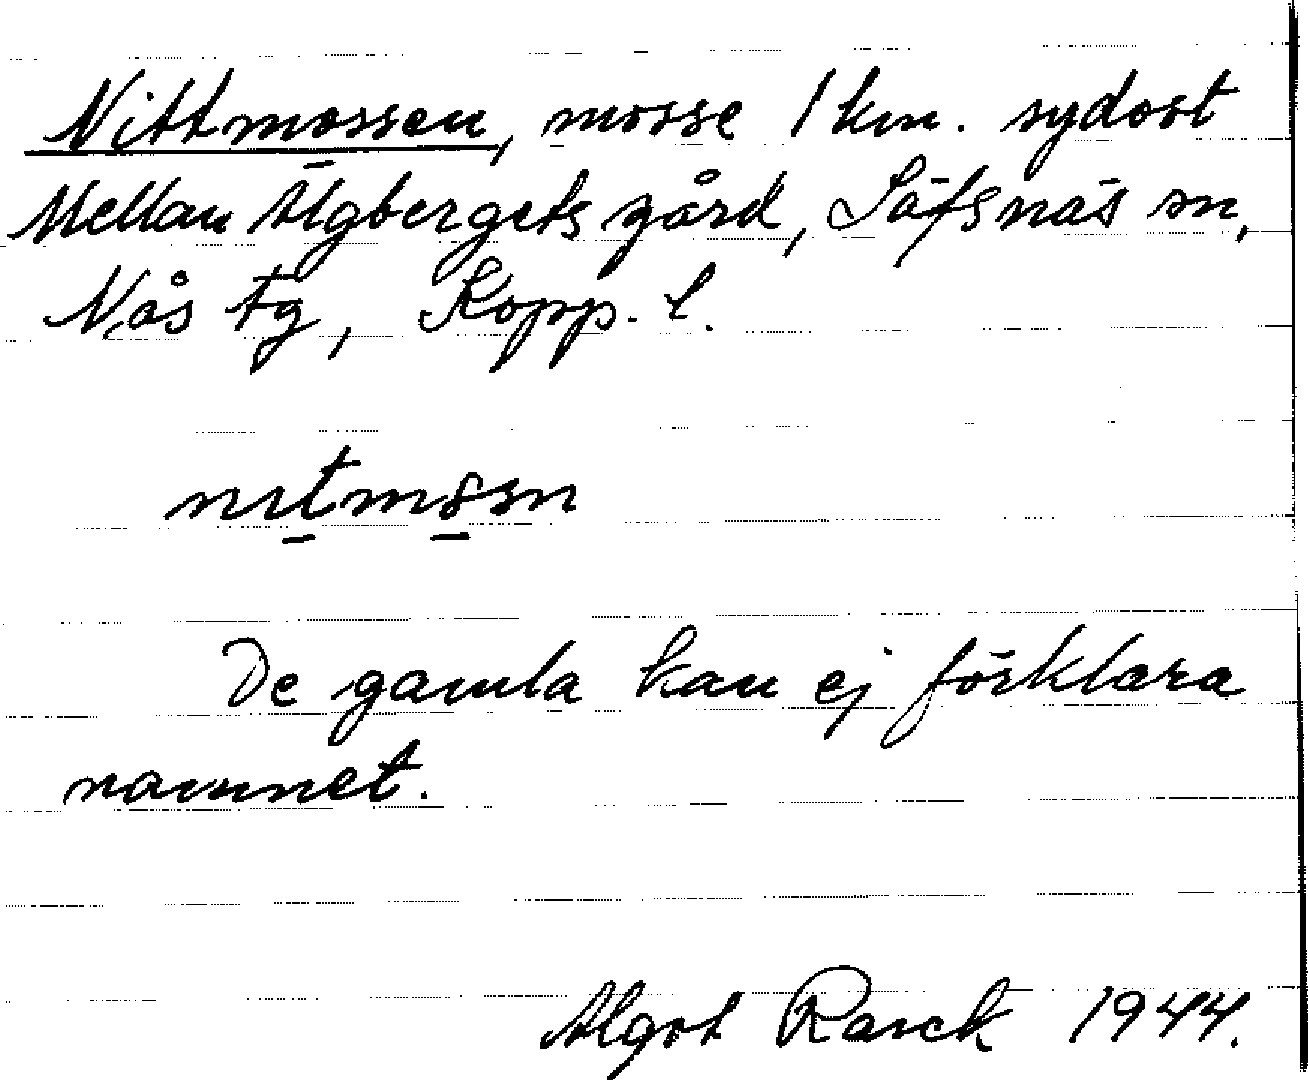 Nittmossen, mosse 1 km. sydost
Mellan Älgbergets gård, Säfsnäs sn,
Nås tg, Kopp. l.
nıtmȯsn
De gamla kan ej förklara
namnet.
Algot Rasck 1944.